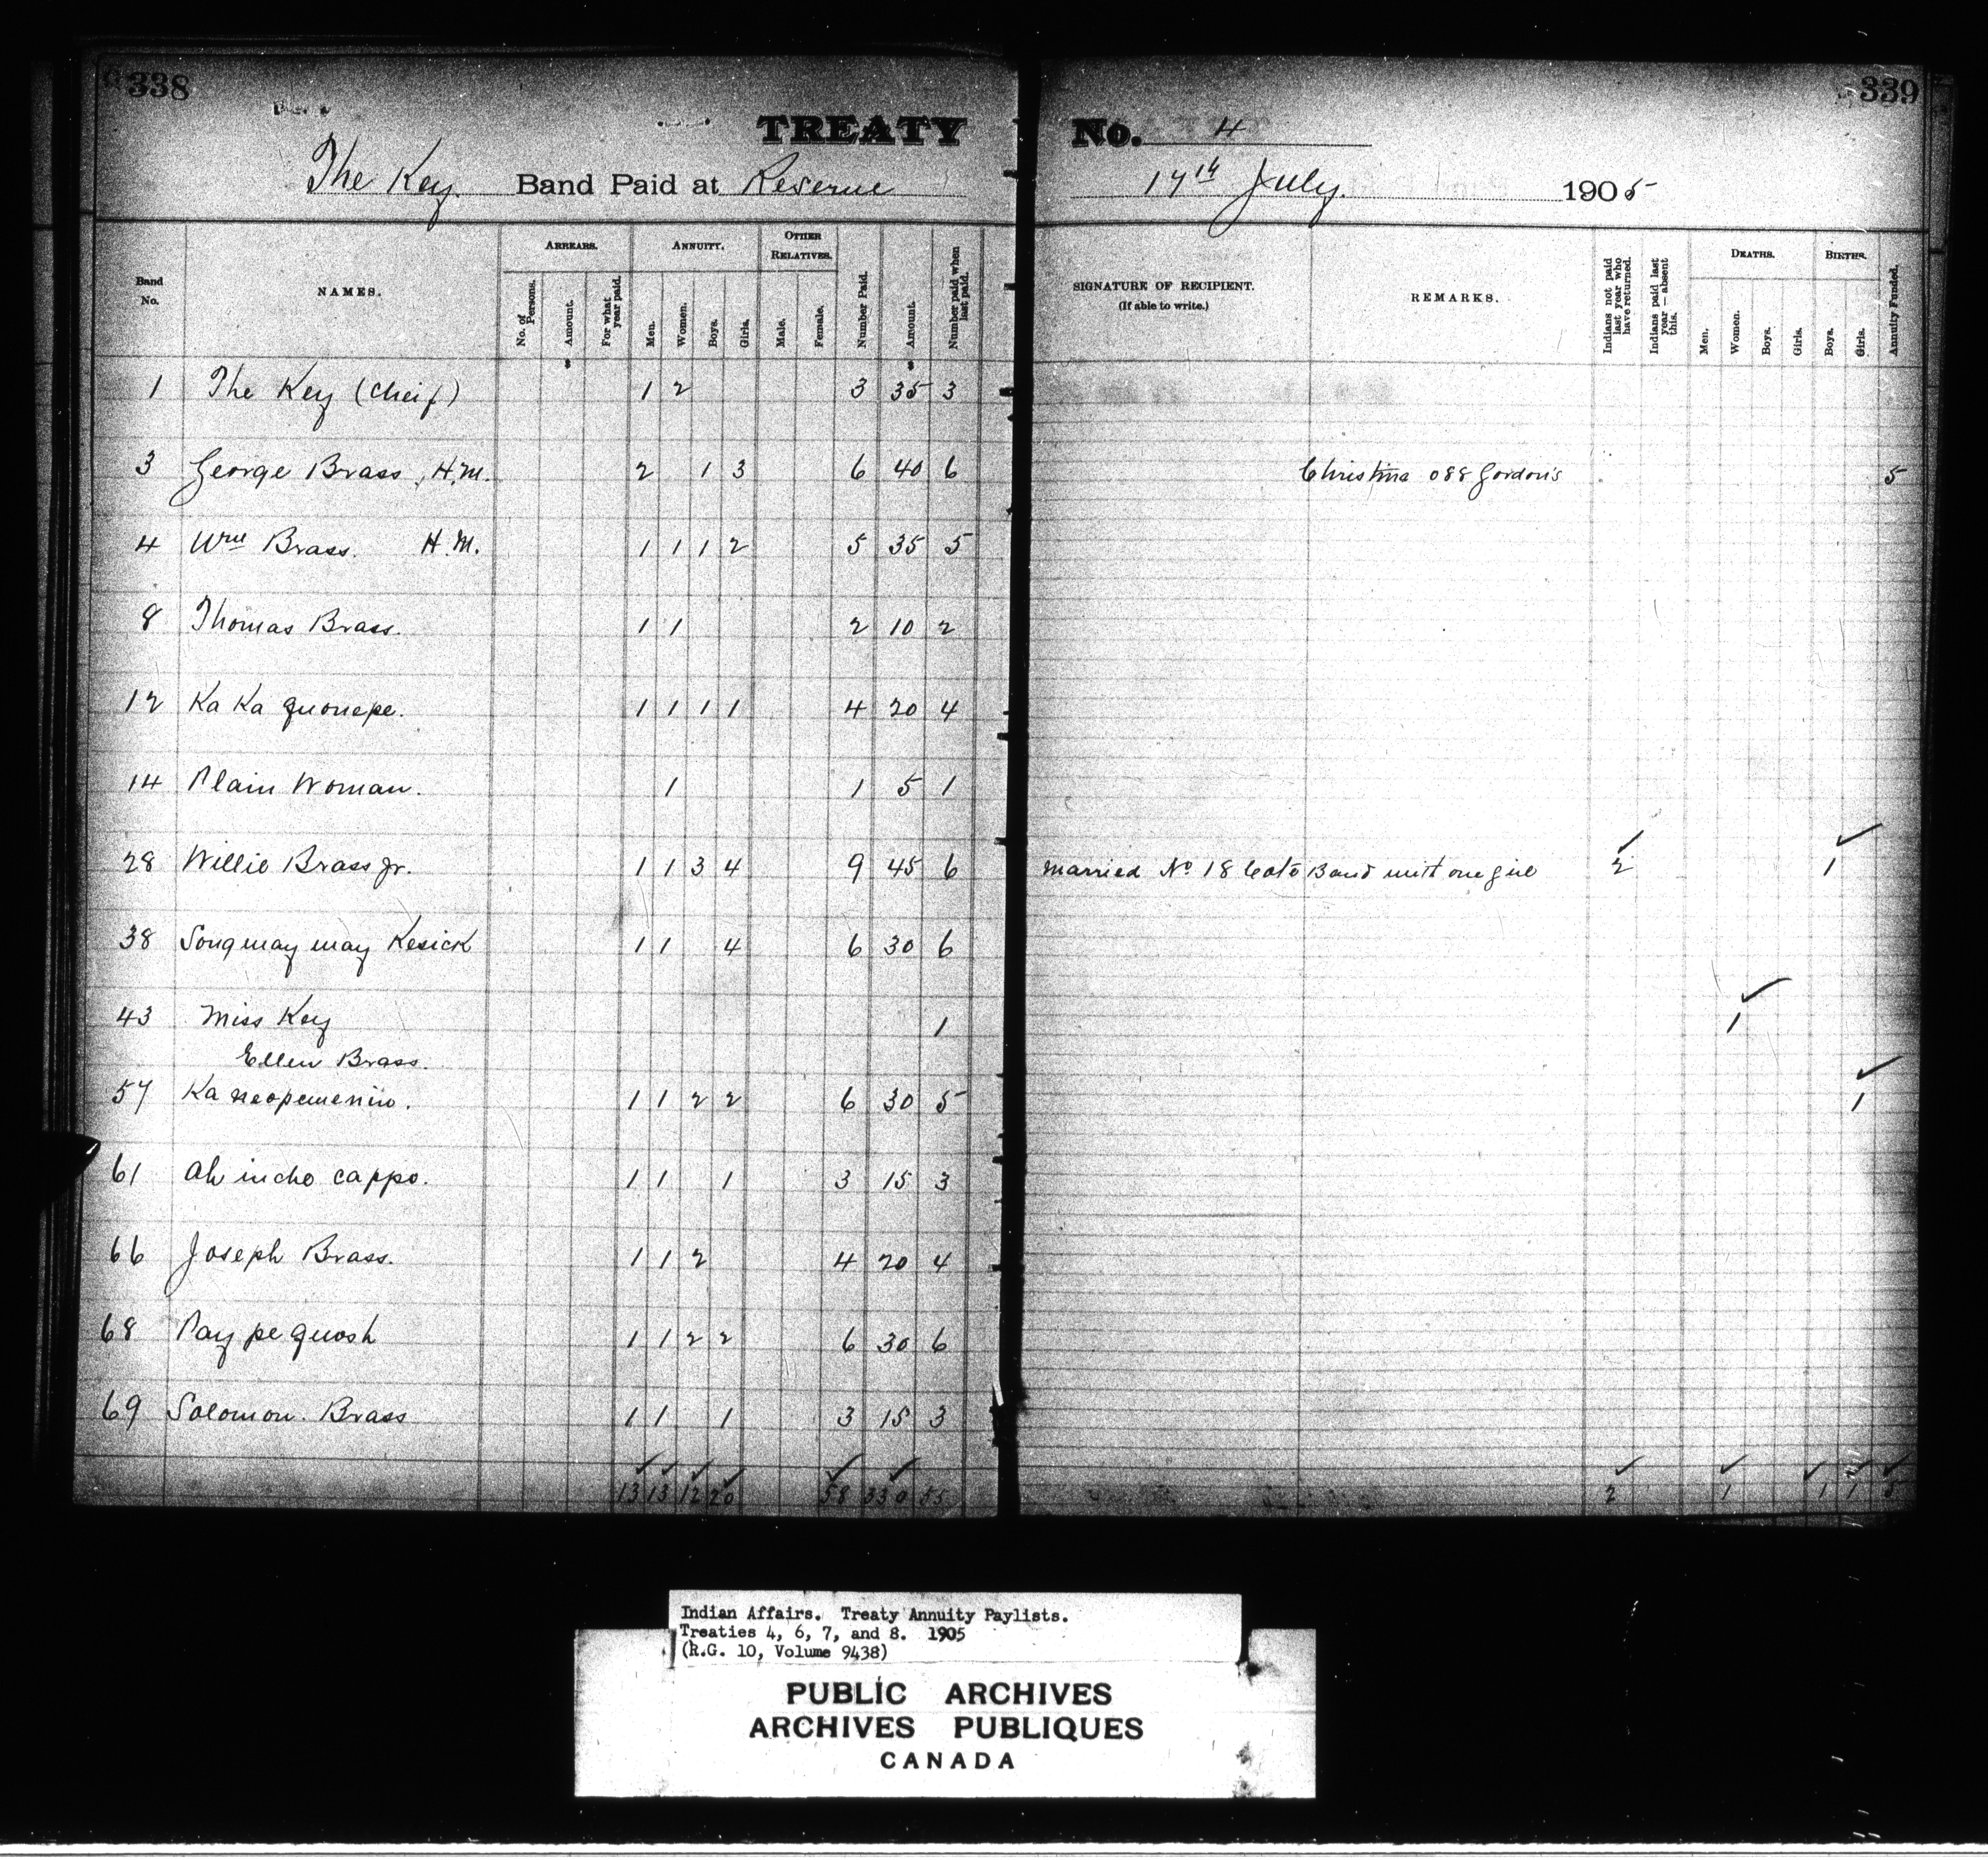 338
339
TREATY No. 4
The Key Band Paid at Reserve 17th July. 1905
Band No.
NAMES.
ARREARS.
No. of Persons.
Amount.
For what year paid.
ANNUITY.
Men.
Women.
Boys.
Girls.
OTHER RELATIVES.
Male.
Female.
Number Paid.
Amount.
Number paid when last paid.
SIGNATURE OF RECIPIENT.
(If able to write.)
REMARKS.
Indians not paid last year who have returned.
Indians paid last year — absent this.
DEATHS.
Men.
Women.
Boys.
Girls.
BIRTHS.
Boys.
Girls.
Annuity Funded.
1 The Key (Cheif) 1 2 3 35 3
3 George Brass, H.M. 2 1 3 6 40 6 Christina 088 Gordon's 5
4 Wm Brass. H.M. 1 1 1 2 5 35 5
8 Thomas Brass. 1 1 2 10 2
12 Ka Ka quonepe. 1 1 1 1 4 20 4
14 Plain Woman. 1 1 5 1
28 Willie Brass Jr. 1 1 3 4 9 45 6 Married No 18 Cote Band with one girl 2 1
38 Songmay may Kesick 1 1 4 6 30 6
43 Miss Key 1 1
Ellen Brass.
57 Ka neopemeniw. 1 1 2 2 6 30 5 1
61 Ah incho cappo. 1 1 1 3 15 3
66 Joseph Brass. 1 1 2 4 20 4
68 Pay pe quosh 1 1 2 2 6 30 6
69 Solomon. Brass 1 1 1 3 15 3
13 13 12 20 58 330 55 2 1 1 1 5
Indian Affairs. Treaty Annuity Paylists.
Treaties 4, 6, 7, and 8. 1905
(R.G. 10, Volume 9438)
PUBLIC ARCHIVES
ARCHIVES PUBLIQUES
CANADA